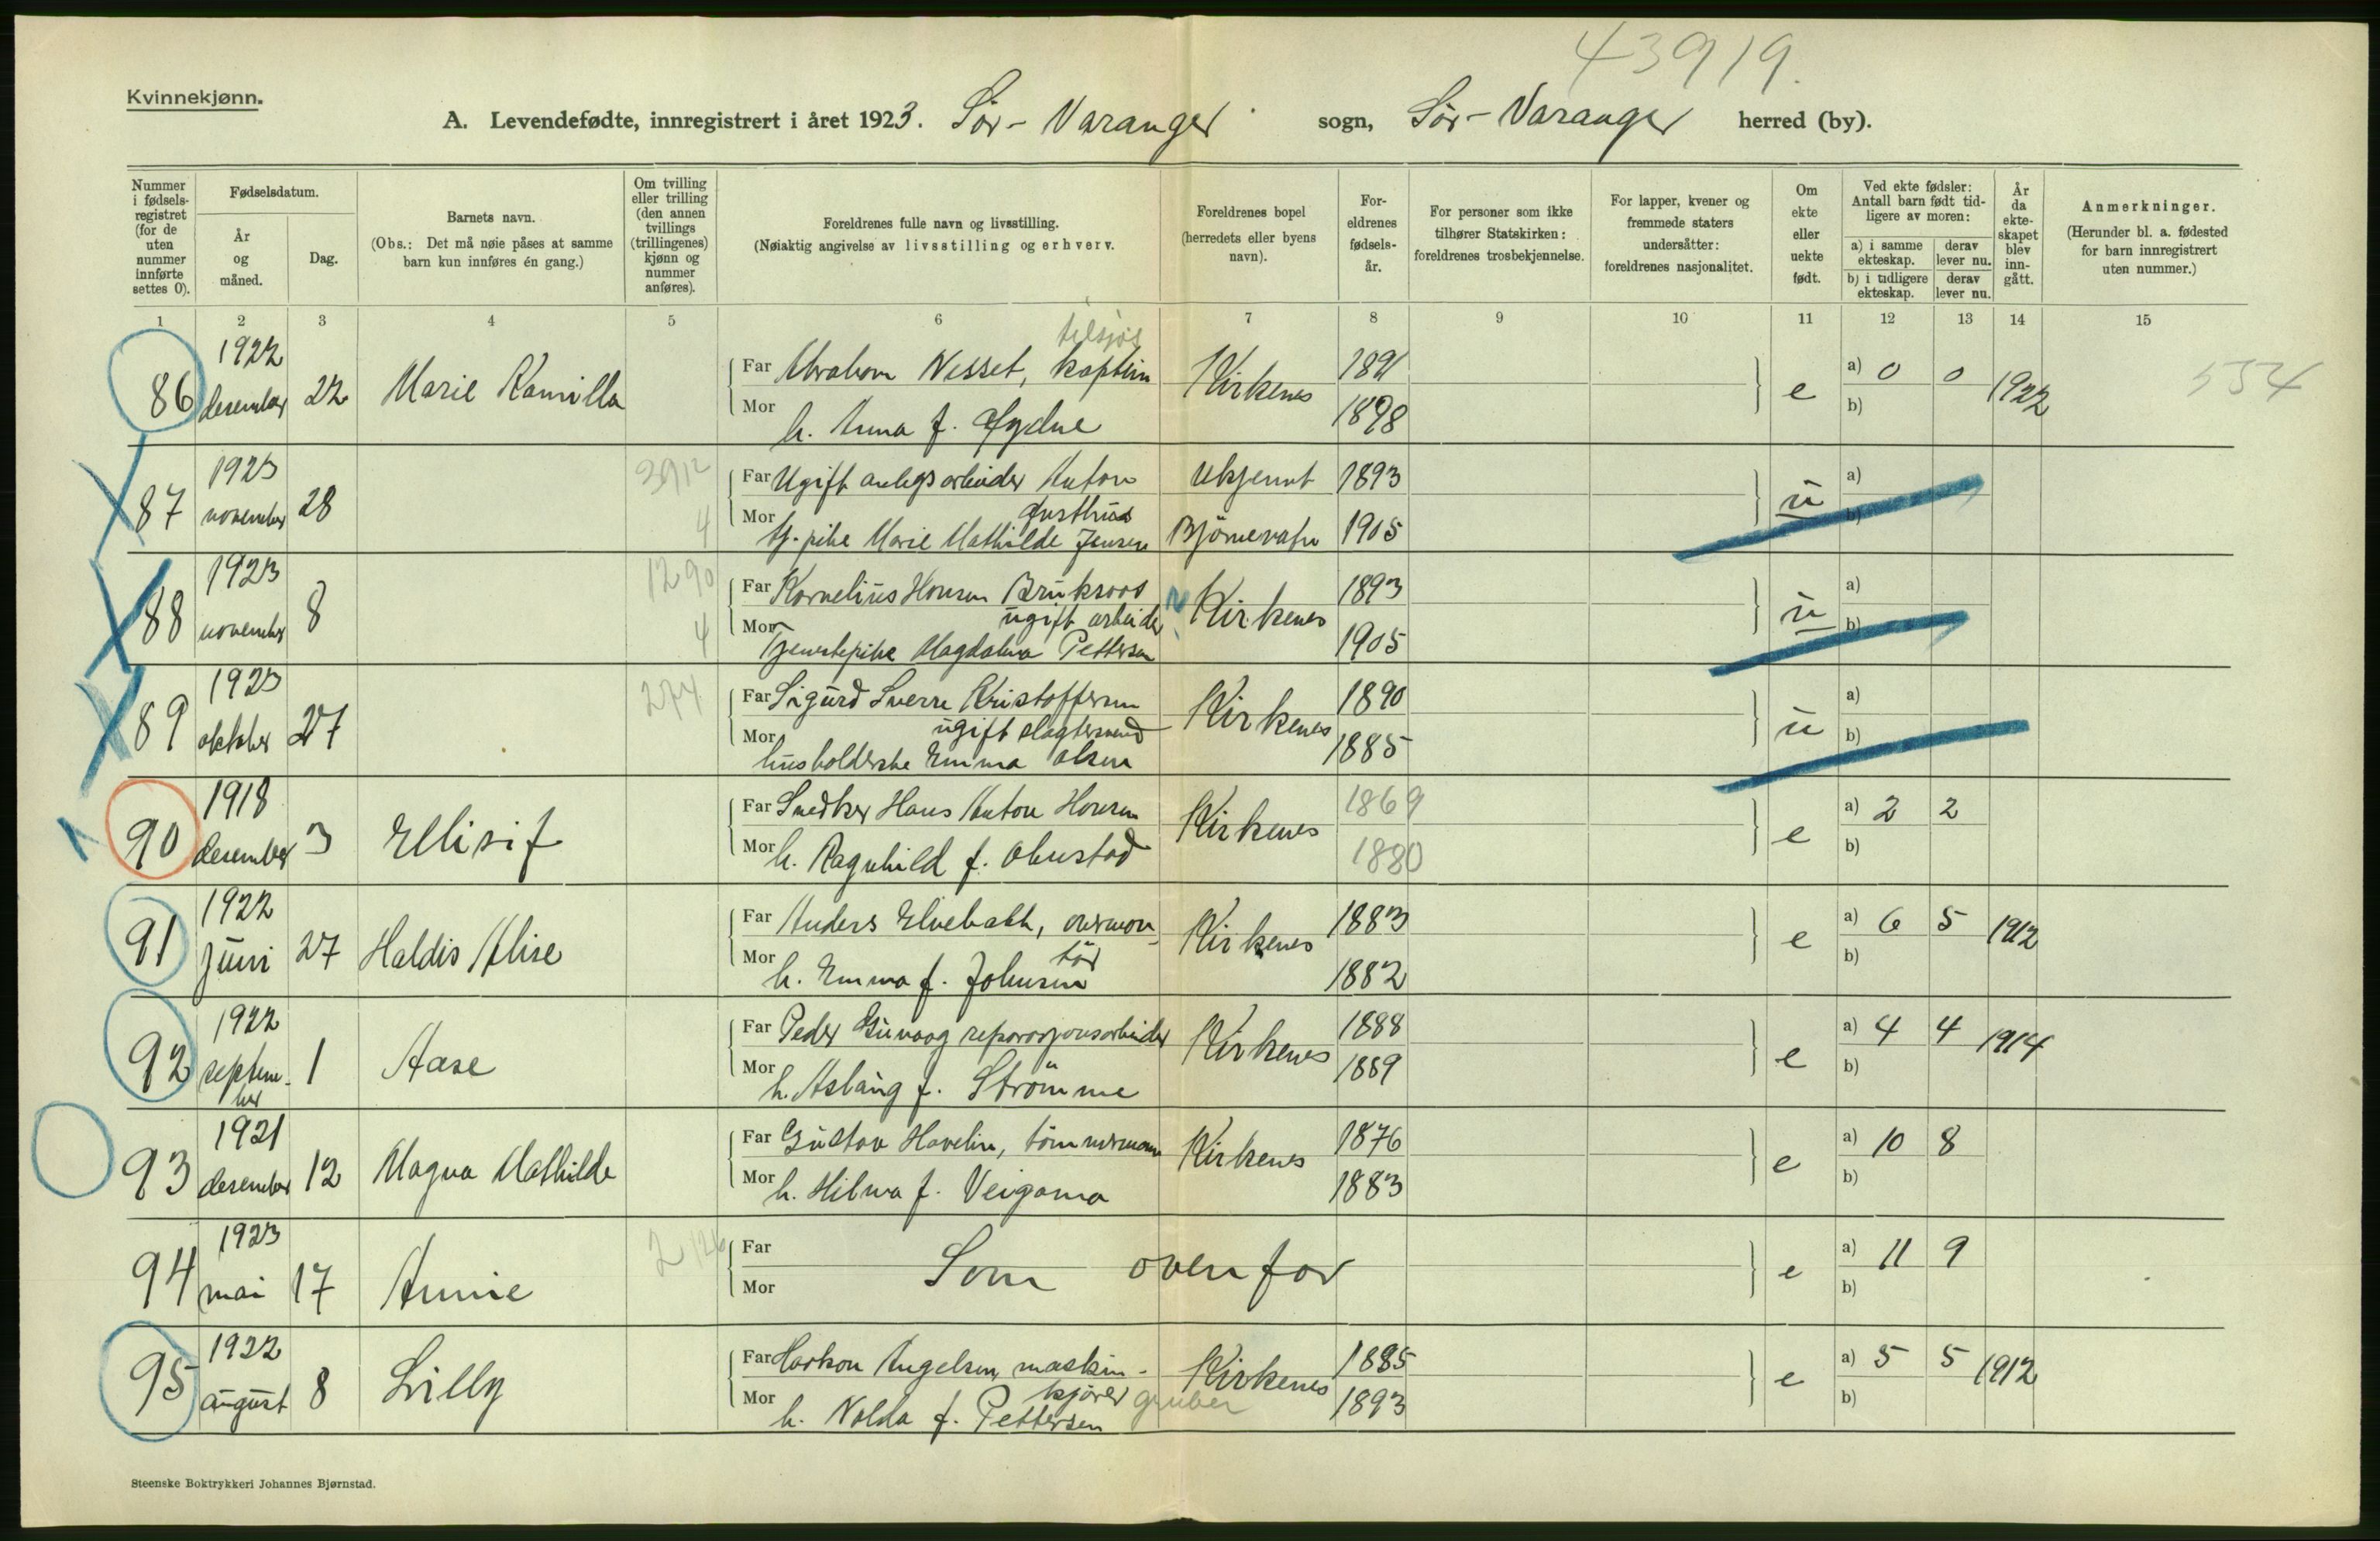 43919.
Kvinnekjønn.
A. Levendefødte, innregistrert i året 1923. Sör-Varanger sogn, Sör-Varanger herred (by).
Nummer i fødsels-registret (for de uten nummer innførte settes 0).
Fødselsdatum.
År og måned.
Dag.
Barnets navn.
(Obs.: Det må nøie påses at samme barn kun innføres én gang.)
Om tvilling eller trilling (den annen tvillings (trillingenes) kjønn og nummer anføres).
Foreldrenes fulle navn og livsstilling.
(Nøiaktig angivelse av livsstilling og erhverv.
Foreldrenes bopel (herredets eller byens navn).
For-eldrenes fødsels-år.
For personer som ikke tilhører Statskirken: foreldrenes trosbekjennelse.
For lapper, kvener og fremmede staters undersåtter: foreldrenes nasjonalitet.
Om ekte eller uekte født.
Ved ekte fødsler: Antall barn født tid-ligere av moren:
a) i samme ekteskap.
derav lever nu.
b) i tidligere ekteskap.
derav lever nu.
År da ekte-skapet blev inn-gått.
Anmerkninger.
(Herunder bl. a. fødested for barn innregistrert uten nummer.)
1 2 3 4 5 6 7 8 9 10 11 12 13 14 15
86 1922 desember 22 Marie Kamilla
Far Abraham Nesset, kaptein Kirkenes 1891
Mor h. Anna f. 1898
e a) 0 0 1922 534
b)
87 1923 november 28 3912 4
Far Ugift anlegsarbeider Anton ukjennt 1893
Mor tj. pike Marie Mathilde Jensen Björnevatn 1905
u a)
b)
88 1923 november 8 1290 4
Far Kornelius Hansen ugift arbeider Kirkenes 1893
Mor Tjenestepike Magdalena Pettersen 1905
u a)
b)
89 1923 oktober 27 274
Far Sigurd Sverre Kristoffersen ugift slagtersvend Kirkenes 1890
Mor husholderske Emma Olsen 1885
u a)
b)
90 1918 desember 3 Ellisif
Far Snedker Hans Anton Hansen Kirkenes 1869
Mor h. Ragnhild f. Olustad 1880
e a) 2 2
b)
91 1922 Juni 27 Haldis Alise
Far Anders Elvebakk, overmon-tör Kirkenes 1883
Mor h. Emma f. Johnsen 1882
e a) 6 5 1912
b)
92 1922 september 1 Aase
Far Peder reparasjonsarbeider Kirkenes 1888
Mor h. Aslaug f. Strömme 1889
e a) 4 4 1914
b)
93 1921 desember 12 Magna Mathilde
Far Gustav Havelin, tömmermann Kirkenes 1876
Mor h. Hilma f. Veigama 1883
e a) 10 8
b)
94 1923 mai 17 Annie 2126
Far
Mor Som ovenfor
e a) 11 9
b)
95 1922 august 8 Lilly
Far Haakon Angelsen, maskin-kjörer gruber Kirkenes 1885
Mor h. Nalda f. Pettersen 1893
e a) 5 5 1912
b)
Steenske Boktrykkeri Johannes Bjørnstad.